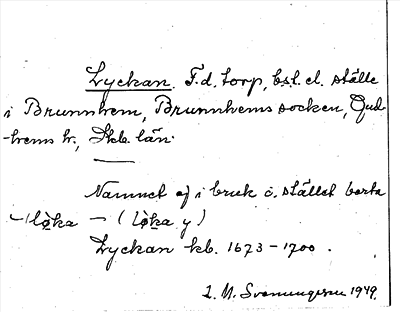 Lyckan. F.d. torp, bst. el. ställe
i Brunnhem, Brunnhems socken, Gud-
hems hr., Skb. län.
Namnet ej i bruk o. stället borta
løka — (løka y)
Lyckan kb. 1673 – 1700.
I. M. Svenungsson 1949.